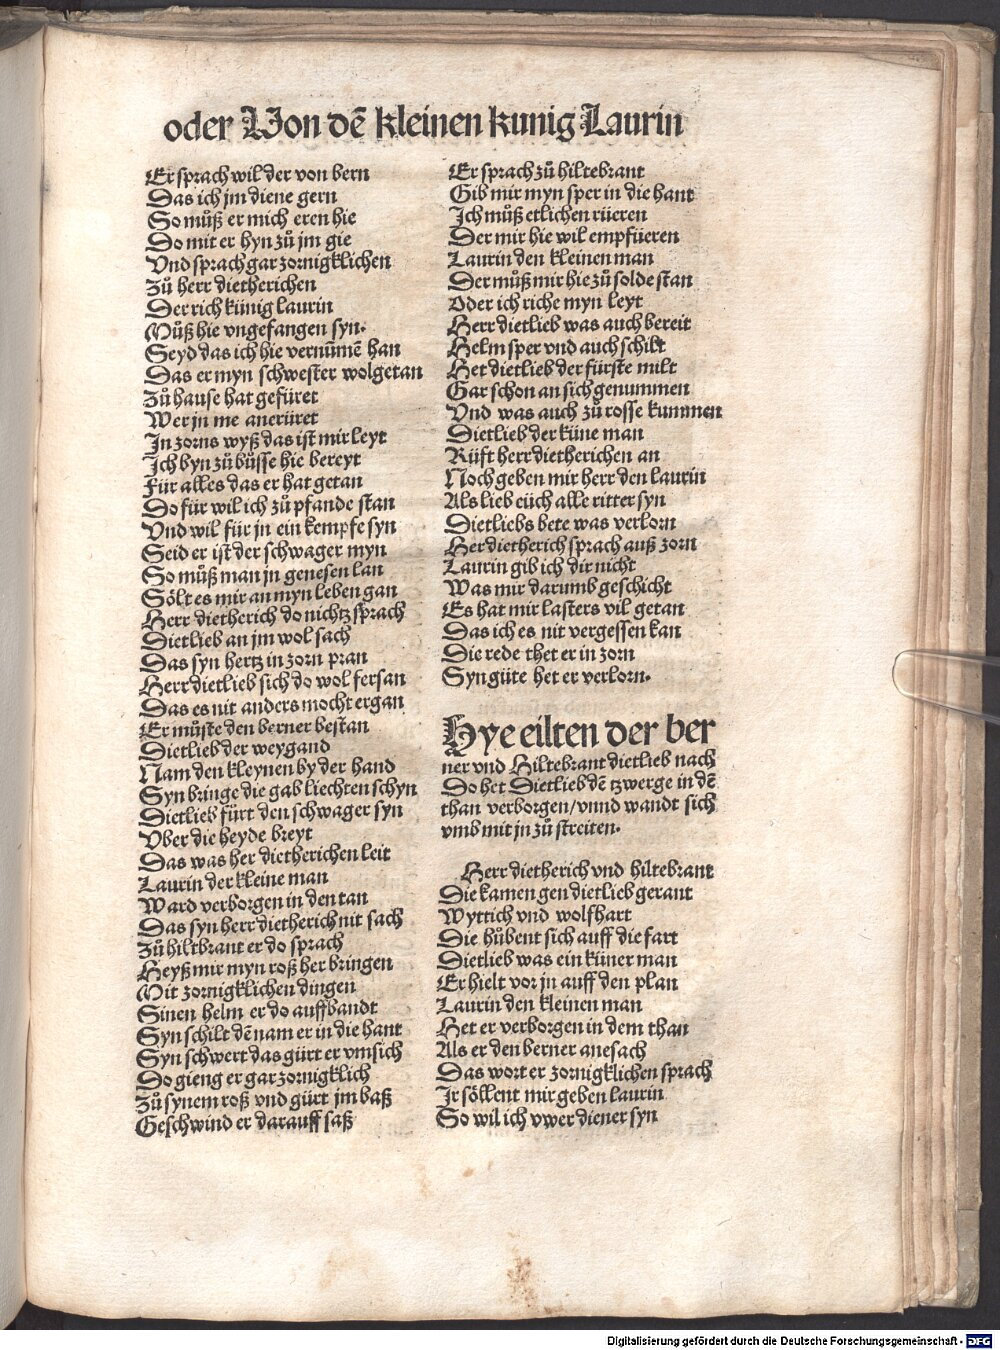 oder Von dē kleinen kunig Laurin
Er sprach wil der von bern
Das ich jm diene gern
So můß er mich eren hie
Do mit er hyn zů jm gie
Vnd sprach gar zornigklichen
Zů herr dietherichen
Der rich künig laurin
Můß hie vngefangen syn.
Seyd das ich hie vernūmē han
Das er myn schwester wolgetan
Zů hause hat gefüret
Wer jn me anerüret
In zorns wyß das ist mir leyt
Ich byn zů bůsse hie bereyt
Für alles das er hat getan
Do für wil ich zů pfande stan
Vnd wil für jn ein kempfe syn
Seid er ist der schwager myn
So můß man jn genesen lan
Sölt es mir an myn leben gan
Herr dietherich do nichtz sprach
Dietlieb an jm wol sach
Das syn hertz in zorn pran
Herr dietlieb sich do wol fersan
Das es nit anders mocht ergan
Er můste den berner bestan
Dietlieb der weygand
Nam den kleynen by der hand
Syn bringe die gab liechten schyn
Dietlieb fürt den schwager syn
Vber die heyde breyt
Das was her dietherichen leit
Laurin der kleine man
Ward verborgen in den tan
Das syn herr dietherich nit sach
Zů hiltbrant er do sprach
Heyß mir myn roß her bringen
Mit zornigklichen dingen
Sinen helm er do auffbandt
Syn schilt dē nam er in die hant
Syn schwert das gürt er vmsich
Do gieng er gar zornigklich
Zů synem roß vnd gürt jm baß
Geschwind er darauff saß
Er sprach zů hiltebrant
Gib mir myn sper in die hant
Ich můß etlichen rüeren
Der mir hie wil empfüeren
Laurin den kleinen man
Der můß mir hie zů solde stan
Oder ich riche myn leyt
Herr dietlieb was auch bereit
Helm sper vnd auch schilt
Het dietlieb der fürste milt
Gar schon an sich genummen
Vnd was auch zů rosse kummen
Dietlieb der küne man
Rüft herr dietherichen an
Noch geben mir herr den laurin
Als lieb eüch alle ritter syn
Dietliebs bete was verlorn
Her dietherich sprach auß zorn
Laurin gib ich dir nicht
Was mir darumb geschicht
Es hat mir lasters vil getan
Das ich es nit vergessen kan
Die rede thet er in zorn
Syn güte het er verlorn.
Hye eilten der ber
ner vnd Hiltebrant dietlieb nach
Do het Dietlieb dē tzwerge in dē
than verborgen/vnnd wandt sich
vmb mit jn zů streiten.
Herr dietherich vnd hiltebrant
Die kamen gen dietlieb gerant
Wyttich vnd wolfhart
Die hůbent sich auff die fart
Dietlieb was ein küner man
Er hielt vor jn auff den plan
Laurin den kleinen man
Het er verborgen in dem than
Als er den berner anesach
Das wort er zornigklichen sprach
Ir söllent mir geben laurin
So wil ich vwer diener syn
Digitalisierung gefördert durch die Deutsche Forschungsgemeinschaft - DFG